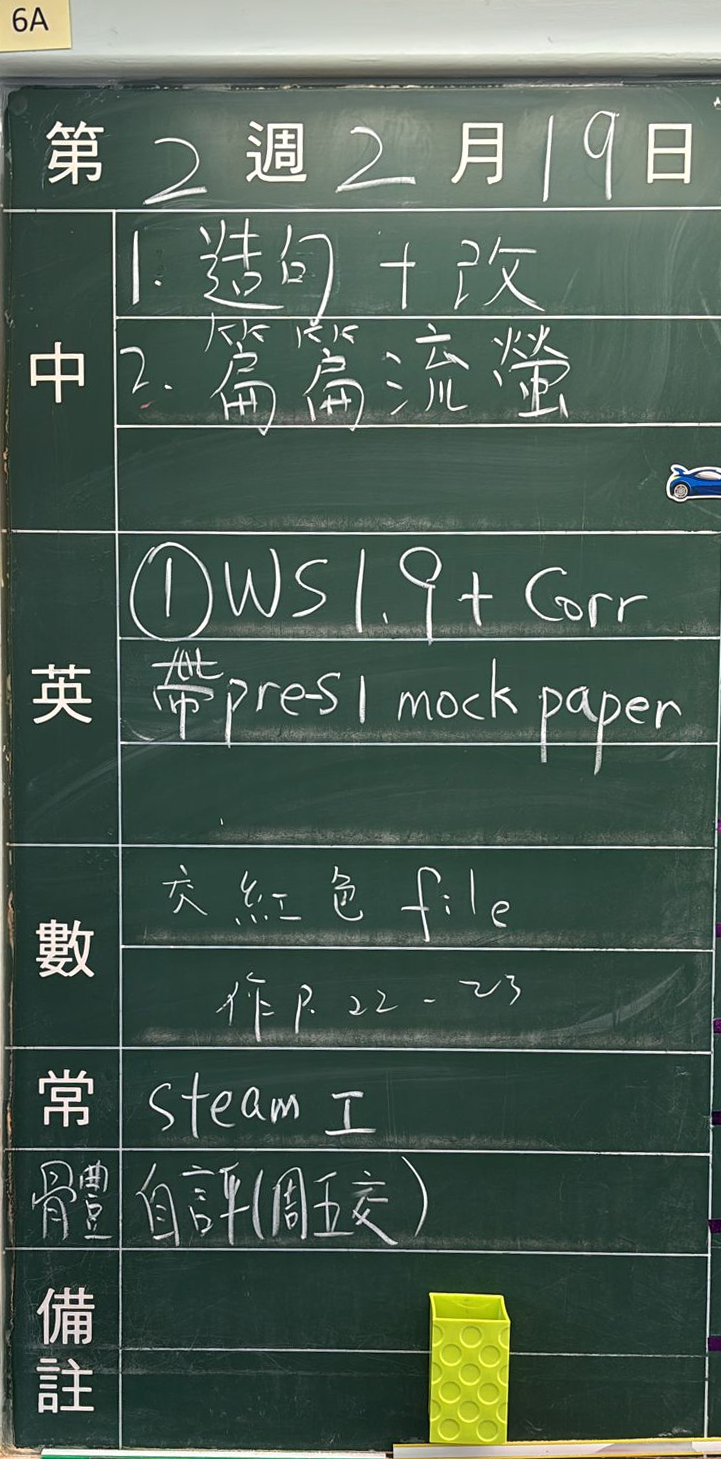 6A
第2週2月19日
中
1. 造句+改
2. 篇篇流螢
英
①WS 1.9 + Corr
帶pre-S1 mock paper
數
交紅色 file
作 P. 22 - 23
常
steam 工
體
自評(周五交)
備註